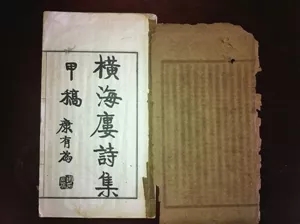 橫海廔詩集
甲稿
康有為